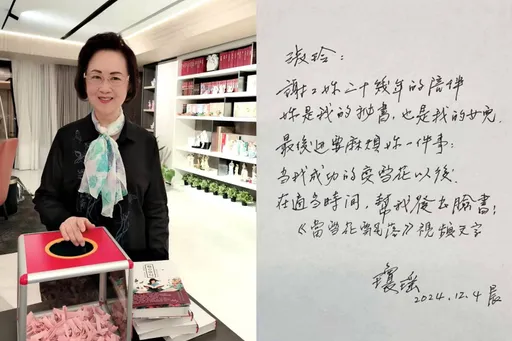 淑玲：
謝謝妳二十幾年的陪伴
妳是我的秘書，也是我的女兒.
最後還要麻煩妳一件事：
當我成功的變雪花以後.
在適當時間，幫我發出臉書；
《當雪花飄落》視頻文字
瓊瑤
2024.12.4 晨